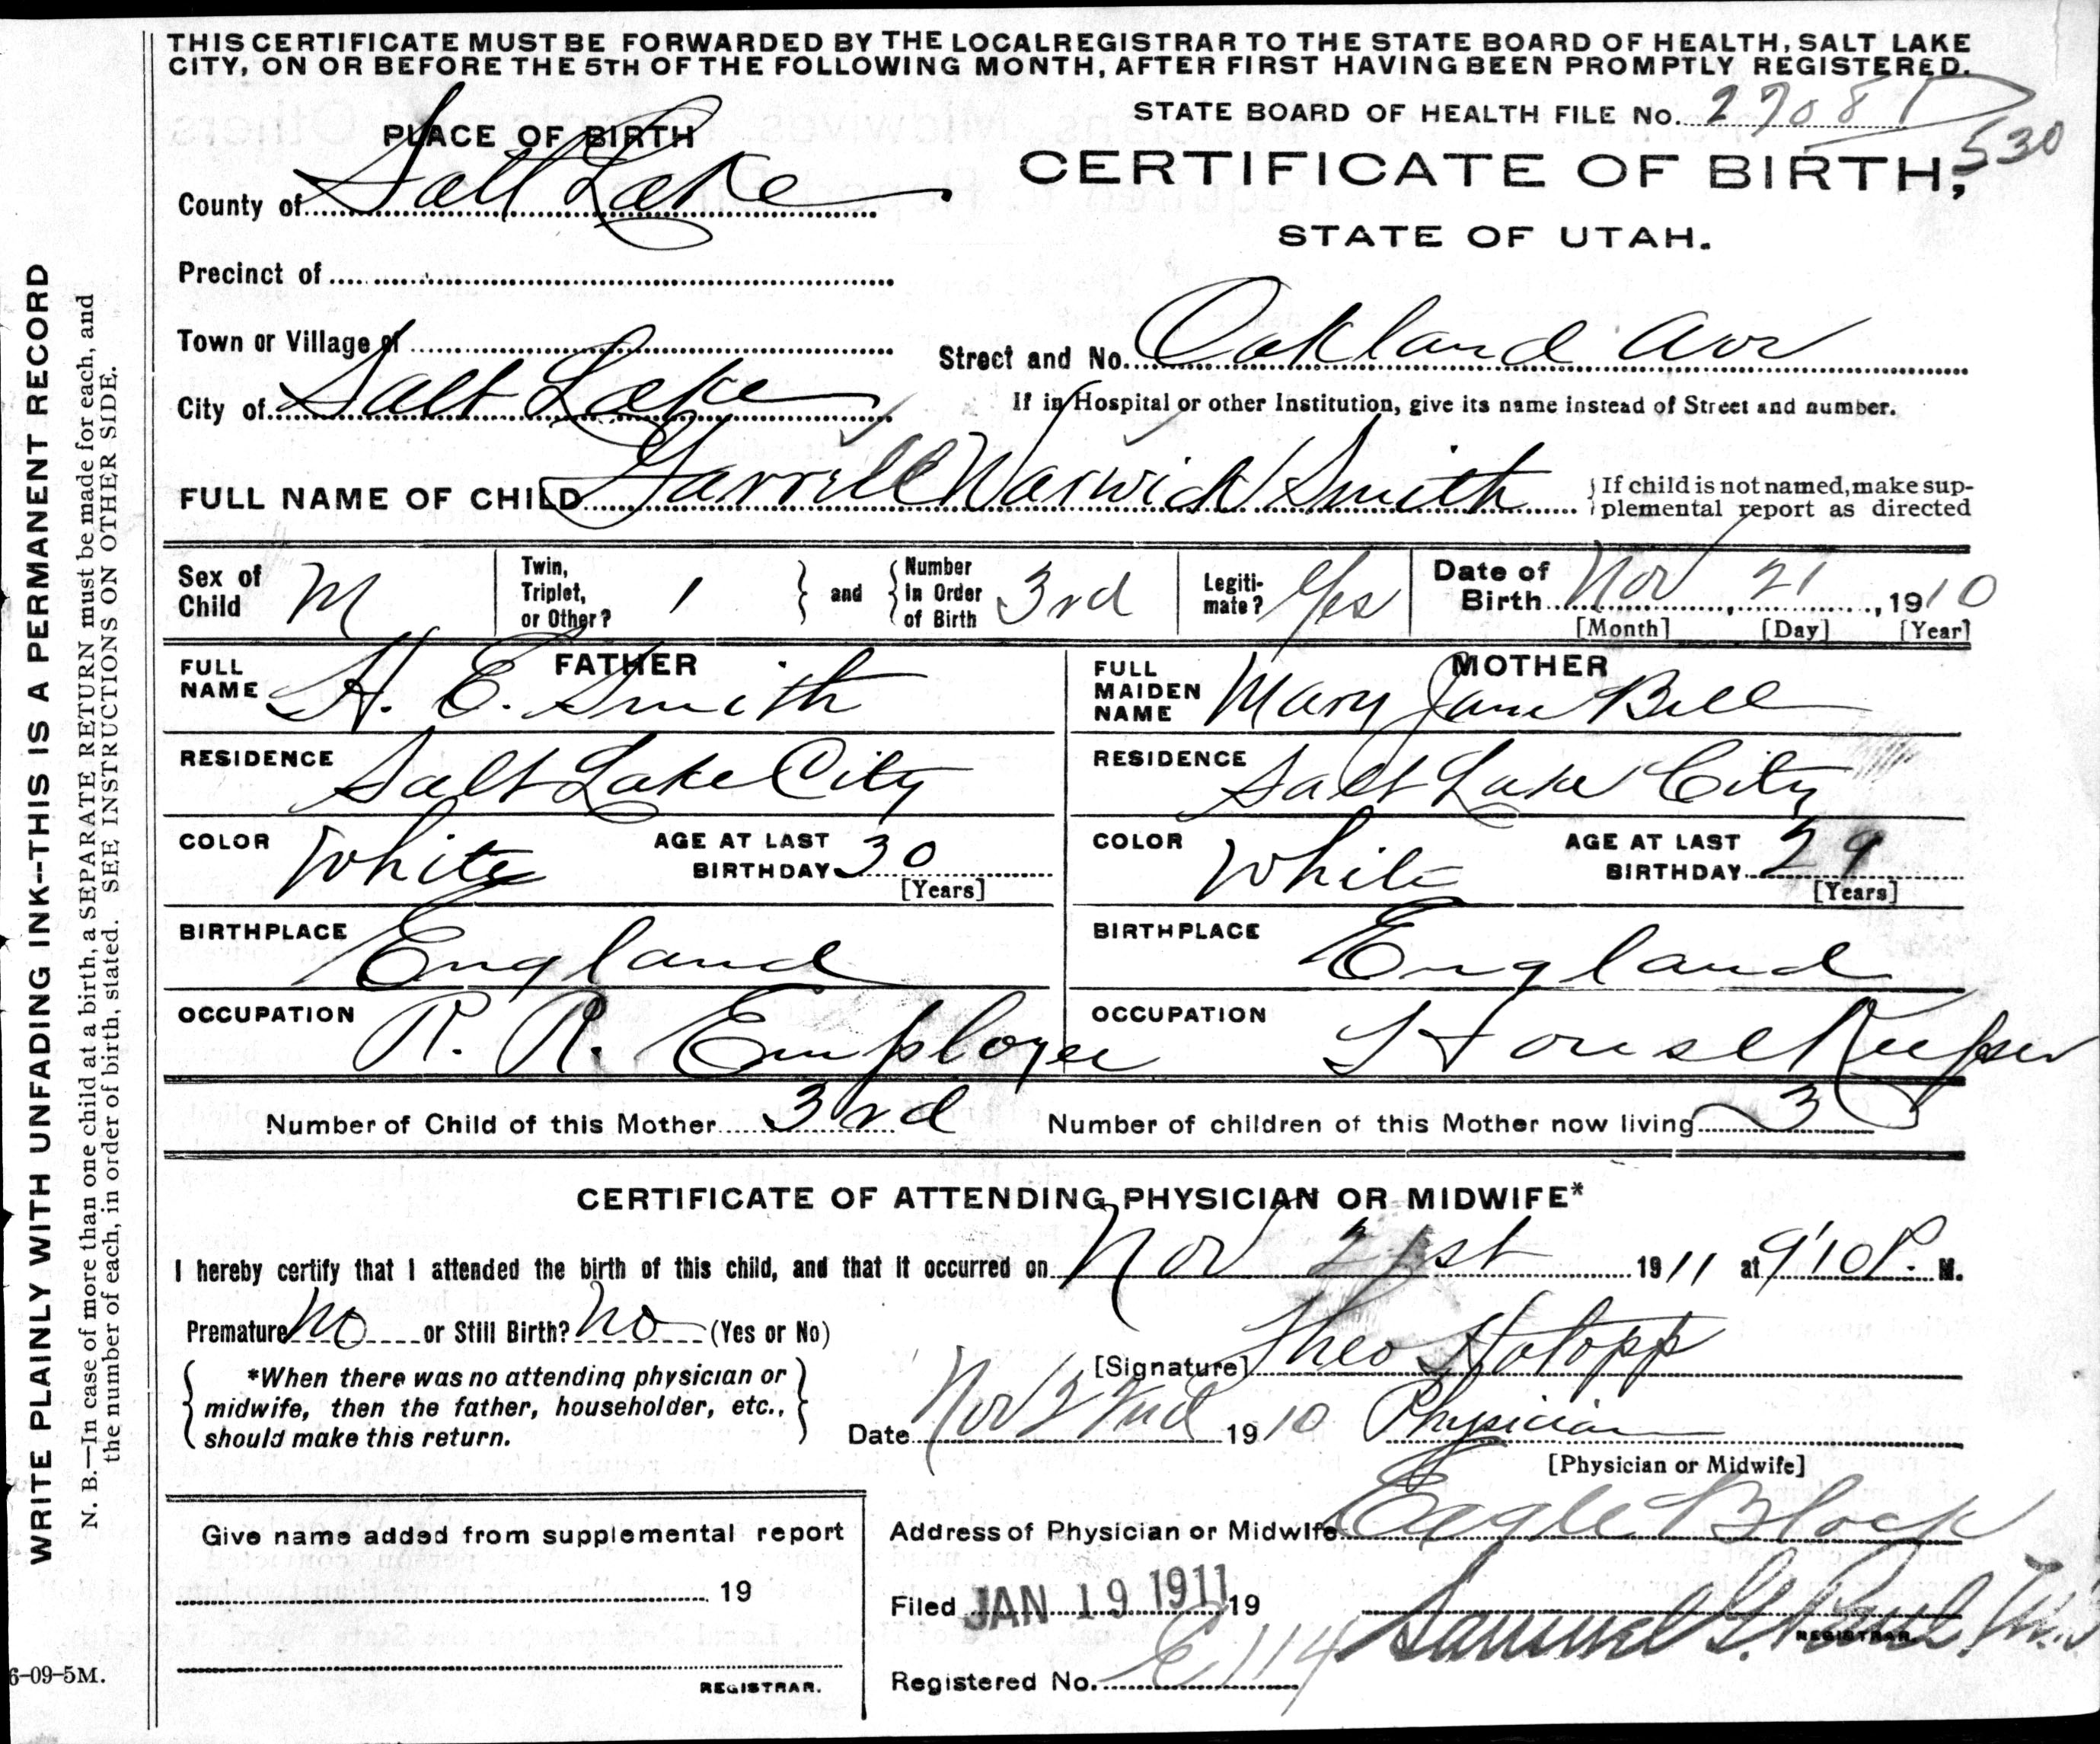 THIS CERTIFICATE MUST BE FORWARDED BY THE LOCAL REGISTRAR TO THE STATE BOARD OF HEALTH, SALT LAKE
CITY, ON OR BEFORE THE 5TH OF THE FOLLOWING MONTH, AFTER FIRST HAVING BEEN PROMPTLY REGISTERED.
STATE BOARD OF HEALTH FILE No. 2708
530
PLACE OF BIRTH
CERTIFICATE OF BIRTH,
STATE OF UTAH.
County of Salt Lake
Precinct of
Town or Village of
Street and No. Oakland Ave
City of Salt Lake
If in Hospital or other Institution, give its name instead of Street and number.
FULL NAME OF CHILD Garrill Warwick Smith
If child is not named, make sup-
plemental report as directed
Sex of Child M
Twin, Triplet, or Other? 1 and Number In Order of Birth 3rd
Legiti-mate? Yes
Date of Birth Nov, 21, 1910
[Month] [Day] [Year]
FATHER
FULL NAME H. E. Smith
RESIDENCE Salt Lake City
COLOR White AGE AT LAST BIRTHDAY 30
[Years]
BIRTHPLACE England
OCCUPATION R. R. Employee
MOTHER
FULL MAIDEN NAME Mary Jane Bill
RESIDENCE Salt Lake City
COLOR White AGE AT LAST BIRTHDAY 29
[Years]
BIRTHPLACE England
OCCUPATION House Keeper
Number of Child of this Mother 3rd Number of children of this Mother now living 3
CERTIFICATE OF ATTENDING PHYSICIAN OR MIDWIFE*
I hereby certify that I attended the birth of this child, and that it occurred on Nov 21st 1911 at 9'10 P. M.
Premature No or Still Birth? No (Yes or No)
*When there was no attending physician or
midwife, then the father, householder, etc.,
should make this return.
[Signature] Theo
Date Nov 22nd 1910 Physician
[Physician or Midwife]
Give name added from supplemental report
19
REGISTRAR.
Address of Physician or Midwife Eagle Block
Filed JAN 19 1911 19
Samuel G. Paul, M.D
REGISTRAR.
Registered No. E114
6-09-5M.
WRITE PLAINLY WITH UNFADING INK--THIS IS A PERMANENT RECORD
N. B.—In case of more than one child at a birth, a SEPARATE RETURN must be made for each, and
the number of each, in order of birth, stated. SEE INSTRUCTIONS ON OTHER SIDE.